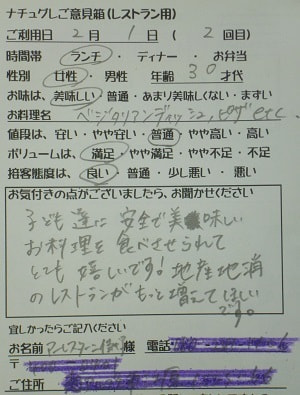 ナチュグしご意見箱(レストラン用)
ご利用日 2月 1日 ( 2 回目)
時間帯 ランチ ・ ディナー ・ お弁当
性別 女性 ・ 男性 年齢 30 才代
お味は、美味しい・普通・あまり美味しくない・まずい
お料理名 ベジタリアンディッシュ、ピザ etc
値段は・安い・やや安い・普通・やや高い・高い
ボリュームは、満足・やや満足・やや不足・不足
接客態度は、良い・普通・少し悪い・悪い
お気付きの点がございましたら、お聞かせください
子ども達に安全で美味しい
お料理を食べさせられて
とても嬉しいです!地産地消
のレストランがもっと増えてほしい
です。
宜しかったらご記入ください
お名前 様 電話
〒
ご住所